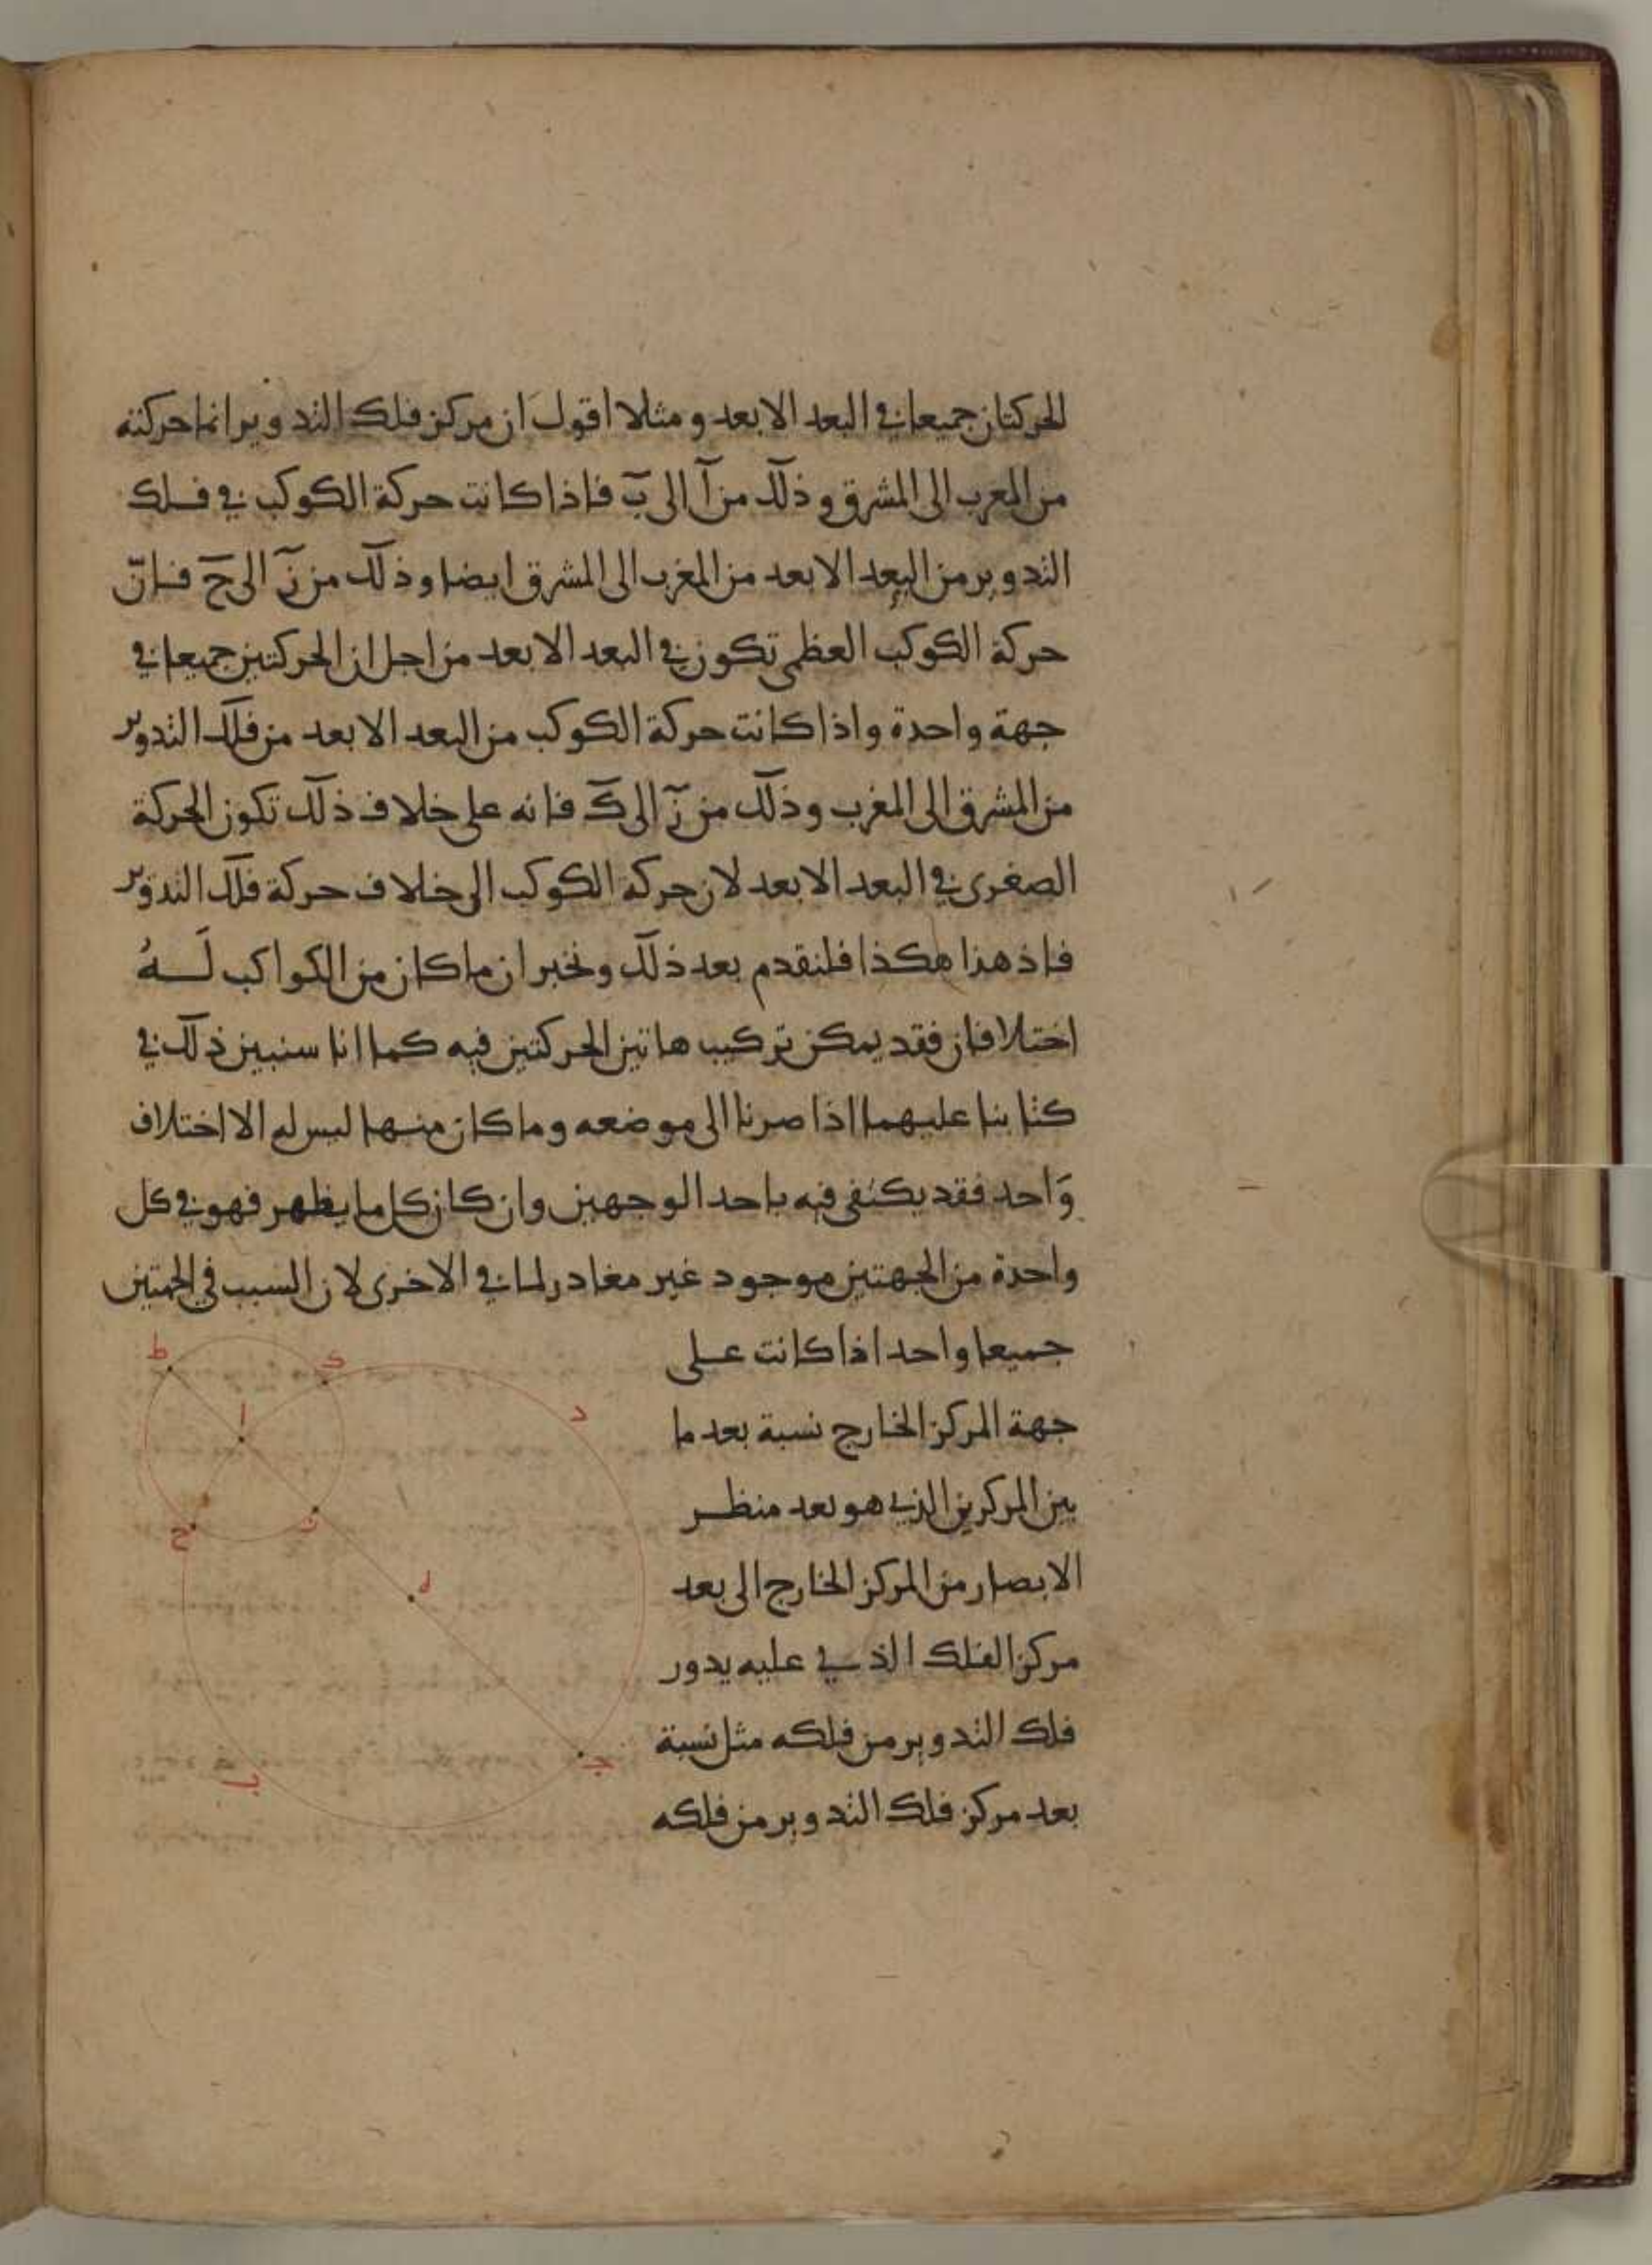 الحركتان جميعا في البعد الابعد ومثلا اقول ان مركز فلك التدوير انما حركته
من المغرب الى المشرق وذلك من آ الى ب فاذا كانت حركة الكوكب في فلك
التدوير من البعد الابعد من المغرب الى المشرق ايضا وذلك من ز الى ح فان
حركة الكوكب العظمى تكون في البعد الابعد من اجل ان الحركتين جميعا في
جهة واحدة واذا كانت حركة الكوكب من البعد الابعد من فلك التدوير
من المشرق الى المغرب وذلك من ز الى ك فانه على خلاف ذلك تكون الحركة
الصغرى في البعد الابعد لان حركة الكوكب الى خلاف حركة فلك التدوير
فاذ هذا هكذا فلنقدم بعد ذلك ونخبر ان ما كان من الكواكب لَهُ
اختلافان فقد يمكن تركيب هاتين الحركتين فيه كما انا سنبين ذلك في
كتابنا عليهما اذا صرنا الى موضعه وما كان منها ليس له الا اختلاف
وَاحد فقد يكتفى فيه باحد الوجهين وان كان كل ما يظهر فهو في كل
واحدة من الجهتين موجود غير مغادر لما في الاخرى لان السبب في الجهتين
جميعا واحد اذا كانت على
جهة المركز الخارج نسبة بعد ما
بين المركزين الذي هو بعد منظر
الابصار من المركز الخارج الى بعد
مركز الفلك الذي عليه يدور
فلك التدوير من فلكه مثل نسبة
بعد مركز فلك التدوير من فلكه
ط
ك
ا
د
ح
ز
ه
ب
ج